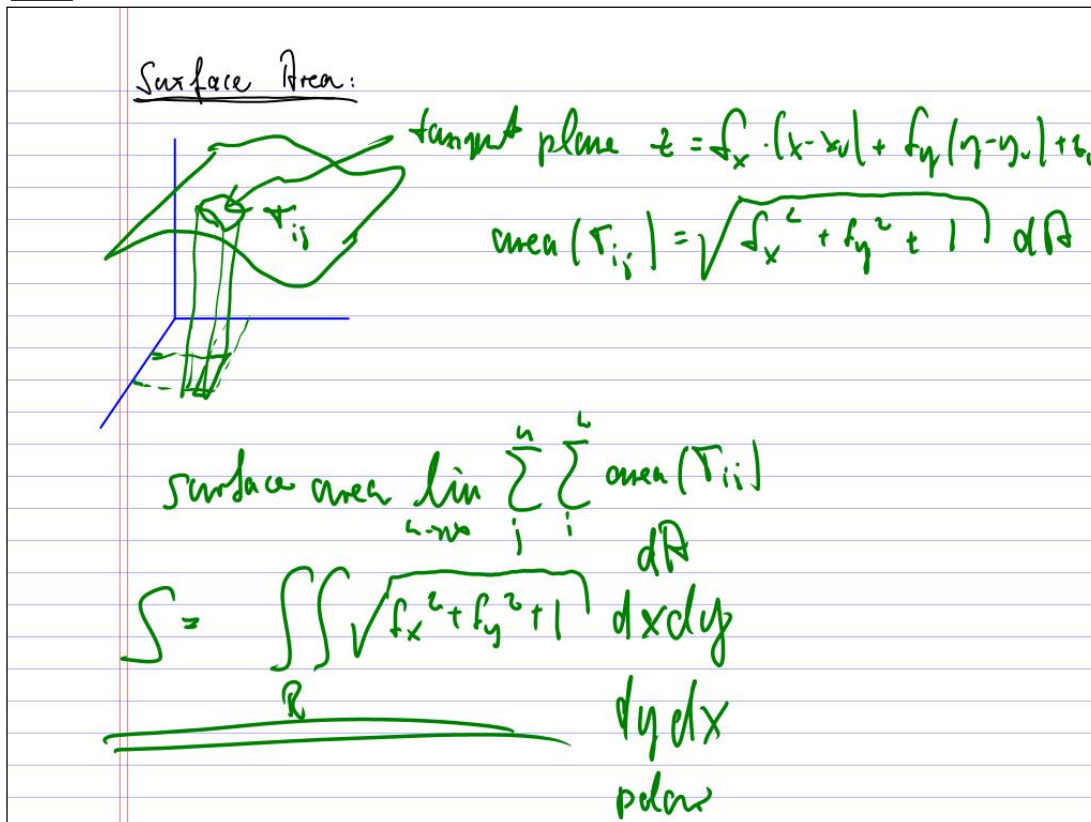 Surface Area:
tangent plane z = f_x · (x-x_0) + f_y (y-y_0) + z_0
T_ij
area (T_ij) = √(f_x² + f_y² + 1) dA
surface area lim n→∞ Σ_j^n Σ_i^n area (T_ij)
dA
S = ∬_R √(f_x² + f_y² + 1) dxdy
dy dx
polar